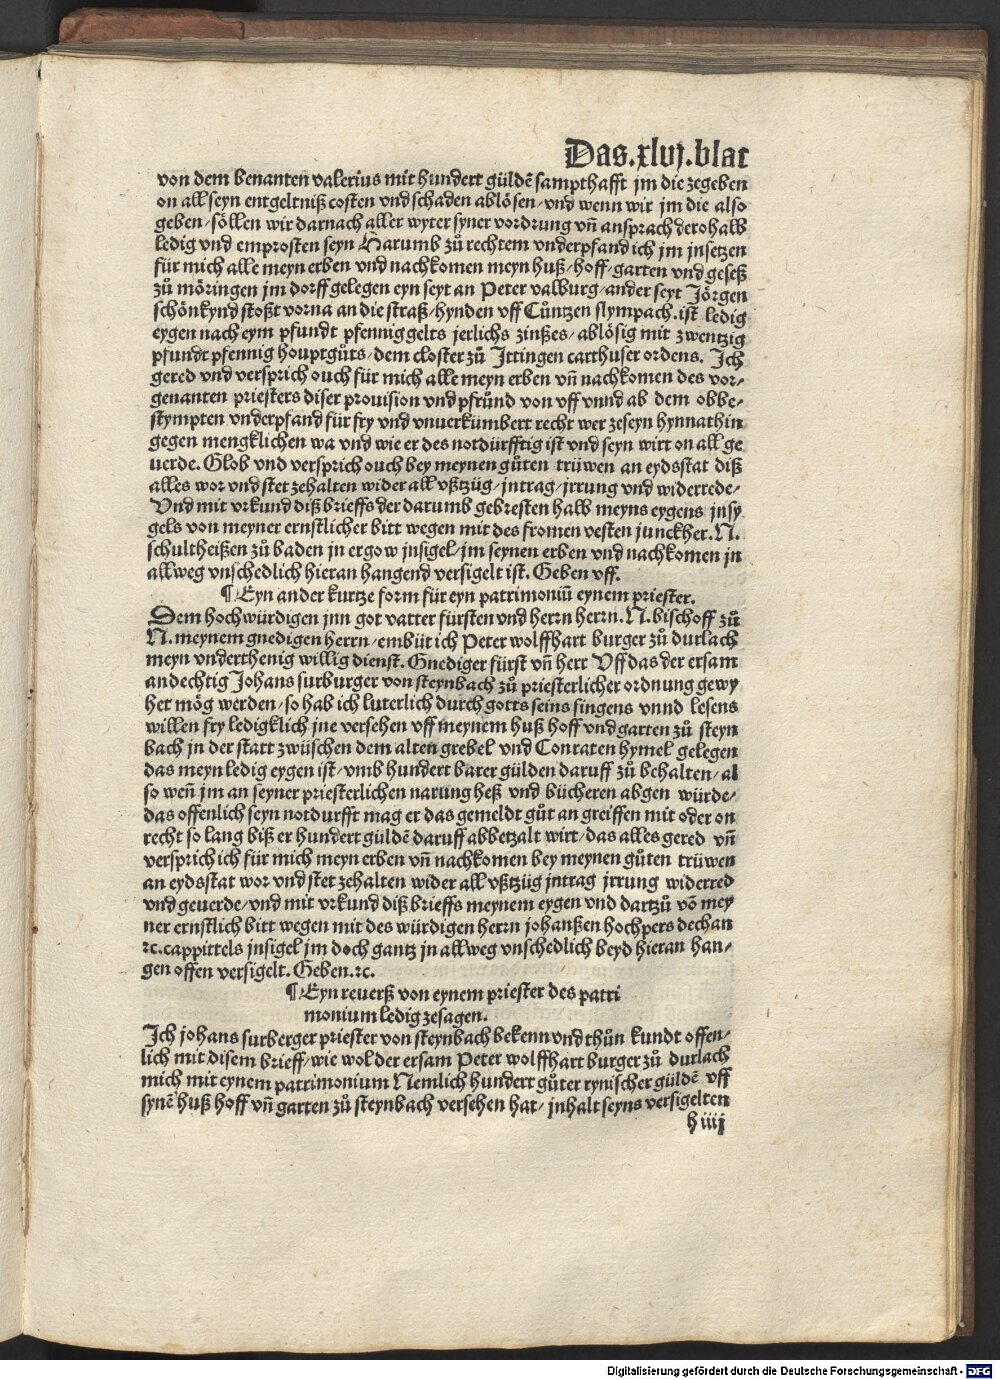 Das.xlvj.blat
von dem benanten valerius mit hundert güldē sampthafft jm die zegeben
on all seyn entgeltniß costen vnd schaden ablösen/vnd wenn wir jm die also
geben/söllen wir darnach aller wyter syner vordrung vñ ansprach derohalb
ledig vnd emprosten seyn Harumb zů rechtem vnderpfand ich jm insetzen
für mich alle meyn erben vnd nachkomen meyn huß/hoff/garten vnd geseß
zů möringen jm dorff gelegen eyn seyt an Peter valburg/ander seyt Jörgen
schönkynd stoßt vorna an die straß/hynden vff Cůntzen slympach.ist ledig
eygen nach eym pfundt pfenniggelts jerlichs zinßes/ablösig mit zwentzig
pfundt pfennig houptgůts/dem closter zů Jttingen carthuser ordens. Jch
gered vnd versprich ouch für mich alle meyn erben vñ nachkomen des vor/
genanten priesters diser prouision vnd pfrůnd von vff vnnd ab dem obbe/
stympten vnderpfand für fry vnd vnuerkümbert recht wer zeseyn hynnathin
gegen mengklichen wa vnd wie er des notdürfftig ist vnd seyn wirt on all ge
uerde. Glob vnd versprich ouch bey meynen gůten trüwen an eydsstat diß
alles wor vnd stet zehalten wider all vßtzüg/jntrag/jrrung vnd widerrede/
Vnd mit vrkund diß brieffs der darumb gebresten halb meyns eygens jnsy
gels von meyner ernstlicher bitt wegen mit des fromen vesten junckher.N.
schultheißen zů baden jn ergow jnsigel/jm seynen erben vnd nachkomen jn
allweg vnschedlich hieran hangend versigelt ist. Geben vff.
¶ Eyn ander kurtze form für eyn patrimoniū eynem priester.
Dem hochwürdigen jnn got vatter fürsten vnd herrn herrn.N.bischoff zů
N.meynem gnedigen herrn/embüt ich Peter wolffhart burger zů durlach
meyn vnderthenig willig dienst. Gnediger fürst vñ herr Vff das der ersam
andechtig Johans surburger von steynbach zů priesterlicher ordnung gewy
het mög werden/so hab ich luterlich durch gotts seins singens vnnd lesens
willen fry ledigklich jne versehen vff meynem huß hoff vnd garten zů steyn
bach jn der statt zwüschen dem alten grebel vnd Conraten hymel gelegen
das meyn ledig eygen ist/vmb hundert barer gülden daruff zů behalten/al
so weñ jm an seyner priesterlichen narung heß vnd bücheren abgen würde/
das offenlich seyn notdurfft mag er das gemeldt gůt an greiffen mit oder on
recht so lang biß er hundert güldē daruff abbetzalt wirt/das alles gered vñ
versprich ich für mich meyn erben vñ nachkomen bey meynen gůten trüwen
an eydsstat wor vnd stet zehalten wider all vßtzüg jntrag jrrung widerred
vnd geuerde/vnd mit vrkund diß brieffs meynem eygen vnd dartzů vō mey
ner ernstlich bitt wegen mit des würdigen herrn johanßen hochpers dechan
ꝛc.cappittels jnsigel jm doch gantz jn allweg vnschedlich beyd hieran han/
gen offen versigelt. Geben.ꝛc.
¶ Eyn reuerß von eynem priester des patri
monium ledig zesagen.
Jch johans surberger priester von steynbach bekenn vnd thůn kundt offen/
lich mit disem brieff/wie wol der ersam Peter wolffhart burger zů durlach
mich mit eynem patrimonium Nemlich hundert gůter rynischer güldē vff
synē huß hoff vñ garten zů steynbach versehen hat/jnhalt seyns versigelten
h iiij
Digitalisierung gefördert durch die Deutsche Forschungsgemeinschaft - DFG